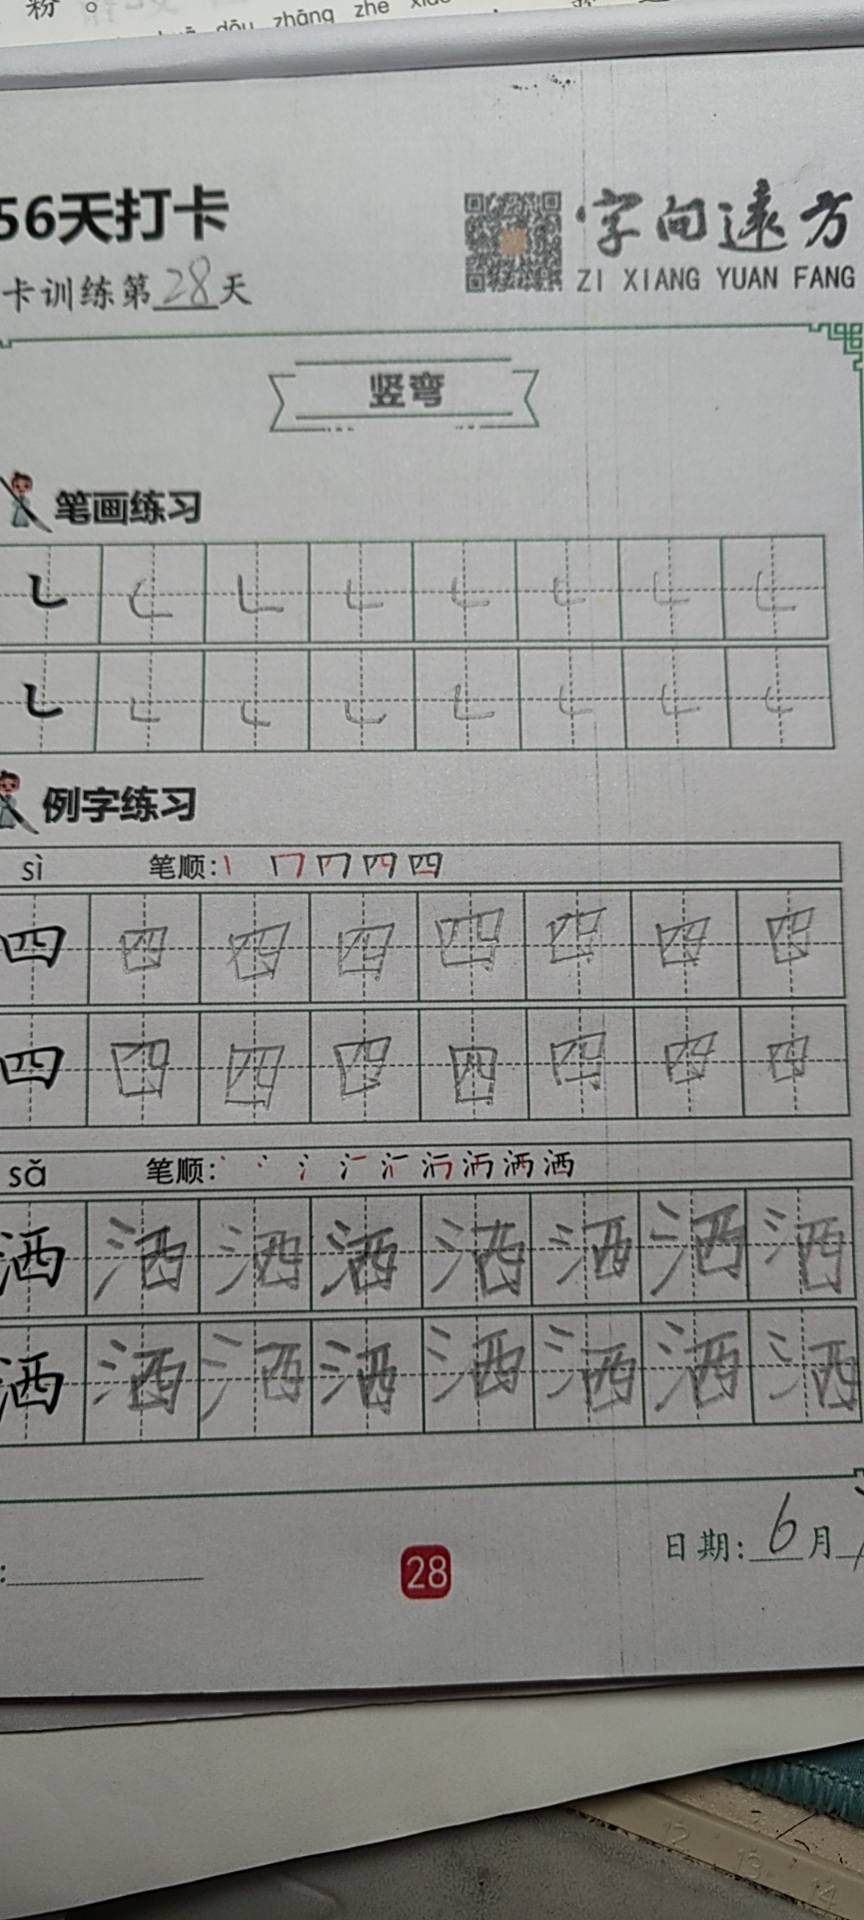 粉。
dōu zhāng zhe
56天打卡
字向远方
ZI XIANG YUAN FANG
卡训练第28天
竖弯
笔画练习
例字练习
sì 笔顺:
四 四 四 四 四 四 四 四
四 四 四 四 四 四 四 四
sǎ 笔顺:
洒 洒 洒 洒 洒 洒 洒 洒
洒 洒 洒 洒 洒 洒 洒 洒
日期: 6月
28
12 13 14